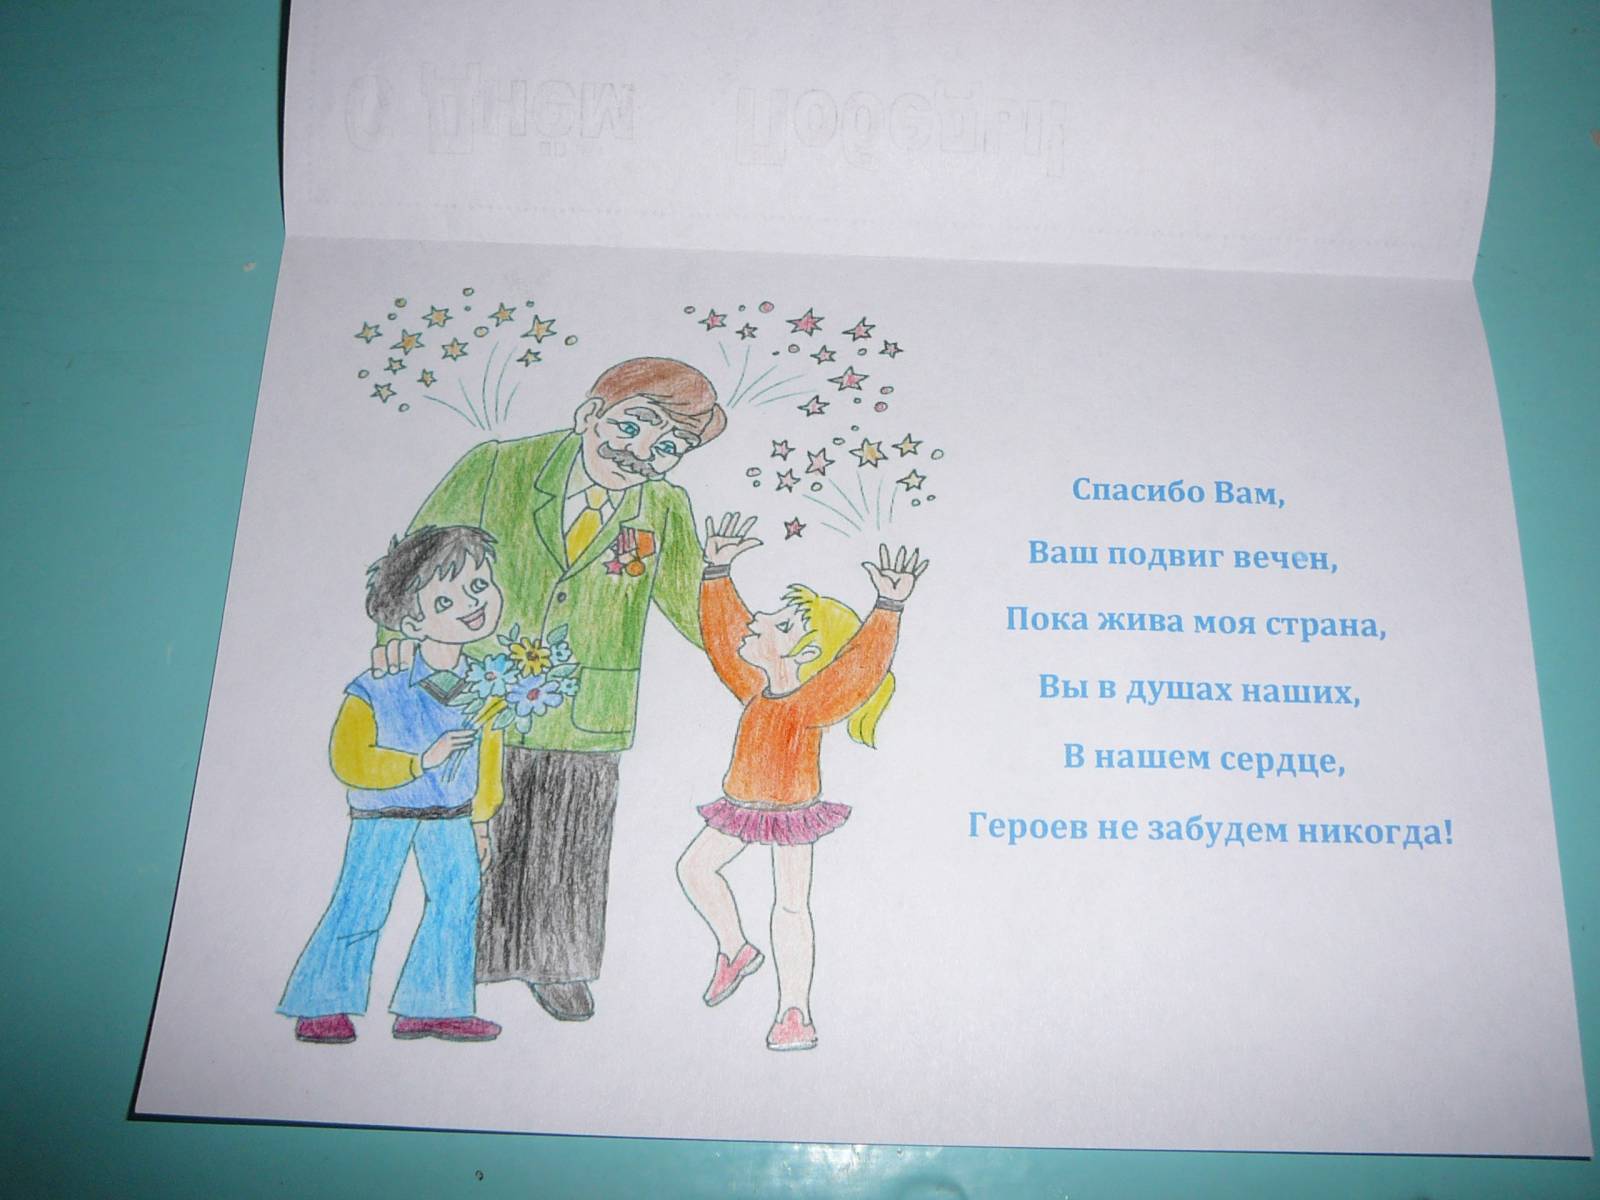 С Днём Победы
Спасибо Вам,
Ваш подвиг вечен,
Пока жива моя страна,
Вы в душах наших,
В нашем сердце,
Героев не забудем никогда!